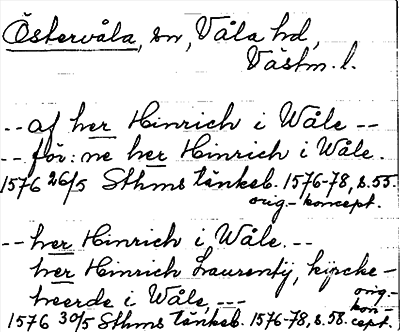 Östervåla, sn, Våla hd,
Västm. l.
-- af her Hinrich i Wåle --
-- för: ne her Hinrich i Wåle.
1576 26/5 Sthms tänkeb. 1576-78, s. 55.
orig.- koncept.
-- her Hinrich i Wåle. --
her Hinrich Laurentij, kircke-
heerde i Wåle, ---
orig.-
kon-
1576 30/5 Sthms tänkeb. 1576-78, s. 58. cept.